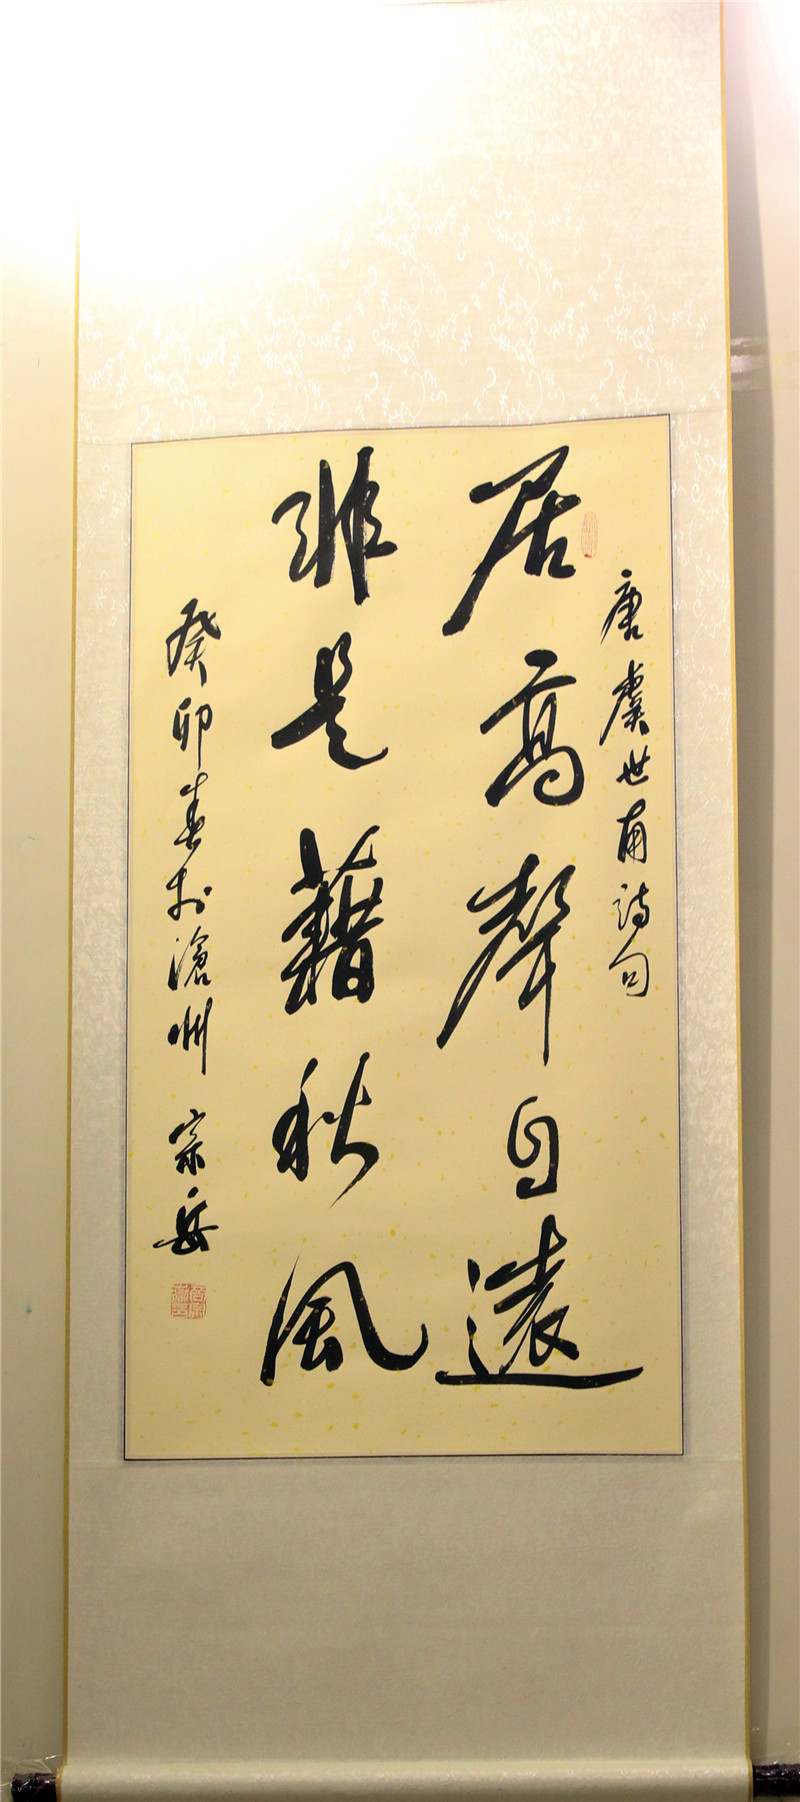 唐虞世南詩句
居高聲自遠
非是藉秋風
癸卯春於滄州 宗岳